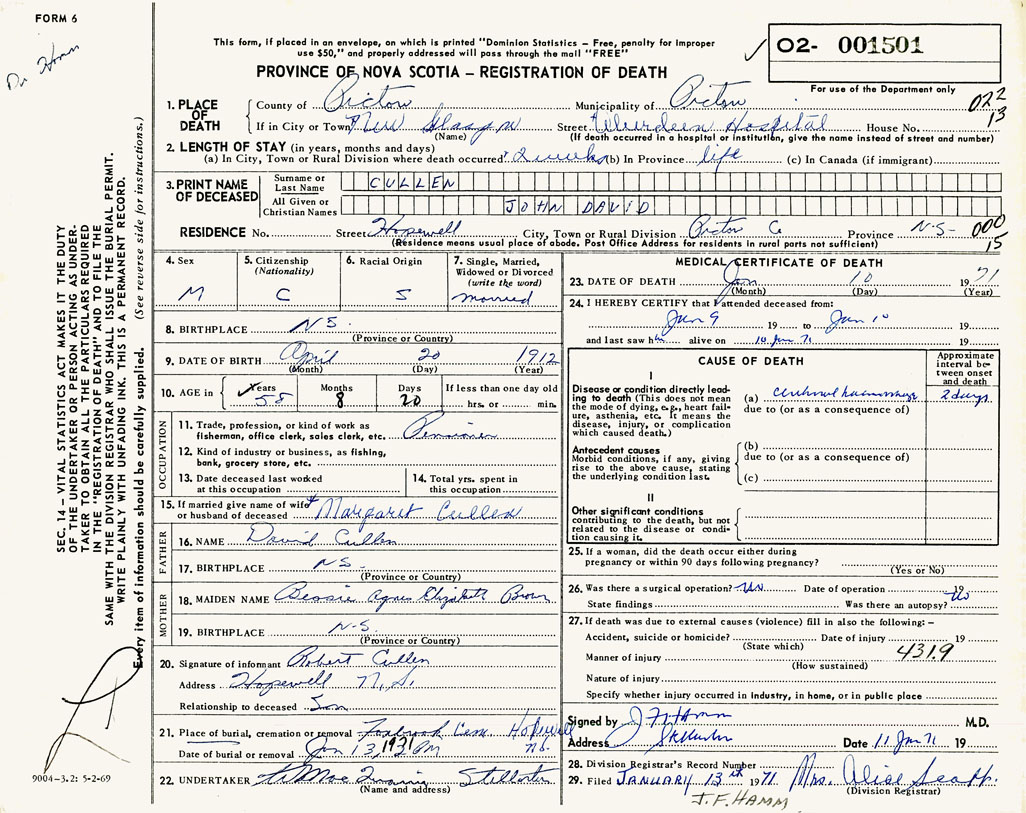 FORM 6
Dr Hamm
This form, if placed in an envelope, on which is printed "Dominion Statistics – Free, penalty for improper
use $50," and properly addressed will pass through the mail "FREE"
✓ 02- 001501
PROVINCE OF NOVA SCOTIA – REGISTRATION OF DEATH
For use of the Department only
1. PLACE OF DEATH
County of Pictou Municipality of Pictou 022
If in City or Town New Glasgow Street Aberdeen Hospital House No. 13
(Name) (If death occurred in a hospital or institution, give the name instead of street and number)
2. LENGTH OF STAY (in years, months and days)
(a) In City, Town or Rural Division where death occurred 2 weeks (b) In Province life (c) In Canada (if immigrant)
3. PRINT NAME OF DECEASED
Surname or Last Name CULLEN
All Given or Christian Names JOHN DAVID
RESIDENCE No. Street Hopewell City, Town or Rural Division Pictou Co Province N.S- 000
(Residence means usual place of abode. Post Office Address for residents in rural parts not sufficient) 15
4. Sex M
5. Citizenship (Nationality) C
6. Racial Origin S
7. Single, Married, Widowed or Divorced (write the word) married
8. BIRTHPLACE N S.
(Province or Country)
9. DATE OF BIRTH April 20 1912
(Month) (Day) (Year)
10. AGE in Years 58 Months 8 Days 20 If less than one day old hrs. or min.
OCCUPATION
11. Trade, profession, or kind of work as fisherman, office clerk, sales clerk, etc. Pensioner
12. Kind of industry or business, as fishing, bank, grocery store, etc.
13. Date deceased last worked at this occupation
14. Total yrs. spent in this occupation
15. If married give name of wife or husband of deceased Margaret Cullen
FATHER
16. NAME David Cullen
17. BIRTHPLACE N S.
(Province or Country)
MOTHER
18. MAIDEN NAME Bessie Agnes Elizabeth Brown
19. BIRTHPLACE N.S.
(Province or Country)
20. Signature of informant Robert Cullen
Address Hopewell N.S.
Relationship to deceased Son
21. Place of burial, cremation or removal Foxbrook Cem Hopewell
N.S.
Date of burial or removal Jan 13 1971
22. UNDERTAKER Stellarton
(Name and address)
MEDICAL CERTIFICATE OF DEATH
23. DATE OF DEATH Jan 10 1971
(Month) (Day) (Year)
24. I HEREBY CERTIFY that I attended deceased from:
Jan 9 19 to Jan 10 19
and last saw him alive on 10 Jan 71 19
CAUSE OF DEATH
Approximate interval between onset and death
I
Disease or condition directly leading to death (This does not mean the mode of dying, e.g., heart failure, asthenia, etc. It means the disease, injury, or complication which caused death.)
(a) cerebral haemorrhage 2 days
due to (or as a consequence of)
Antecedent causes
Morbid conditions, if any, giving rise to the above cause, stating the underlying condition last.
(b)
due to (or as a consequence of)
(c)
II
Other significant conditions contributing to the death, but not related to the disease or condition causing it.
25. If a woman, did the death occur either during pregnancy or within 90 days following pregnancy?
(Yes or No)
26. Was there a surgical operation? No Date of operation 19
State findings Was there an autopsy? No
27. If death was due to external causes (violence) fill in also the following: –
Accident, suicide or homicide? Date of injury 19
(State which) 431.9
Manner of injury
(How sustained)
Nature of injury
Specify whether injury occurred in industry, in home, or in public place
Signed by J F Hamm M.D.
Address Stellarton Date 11 Jan 71 19
28. Division Registrar's Record Number
29. Filed JANUARY 13th 1971 Mrs. Alice
(Division Registrar)
J.F. HAMM
SEC. 14 – VITAL STATISTICS ACT MAKES IT THE DUTY
OF THE UNDERTAKER OR PERSON ACTING AS UNDER-
TAKER TO OBTAIN ALL THE PARTICULARS REQUIRED
IN THE "REGISTRATION OF DEATH" AND TO FILE THE
SAME WITH THE DIVISION REGISTRAR WHO SHALL ISSUE THE BURIAL PERMIT.
WRITE PLAINLY WITH UNFADING INK. THIS IS A PERMANENT RECORD.
Every item of information should be carefully supplied. (See reverse side for instructions.)
9004-3.2: 5-2-69